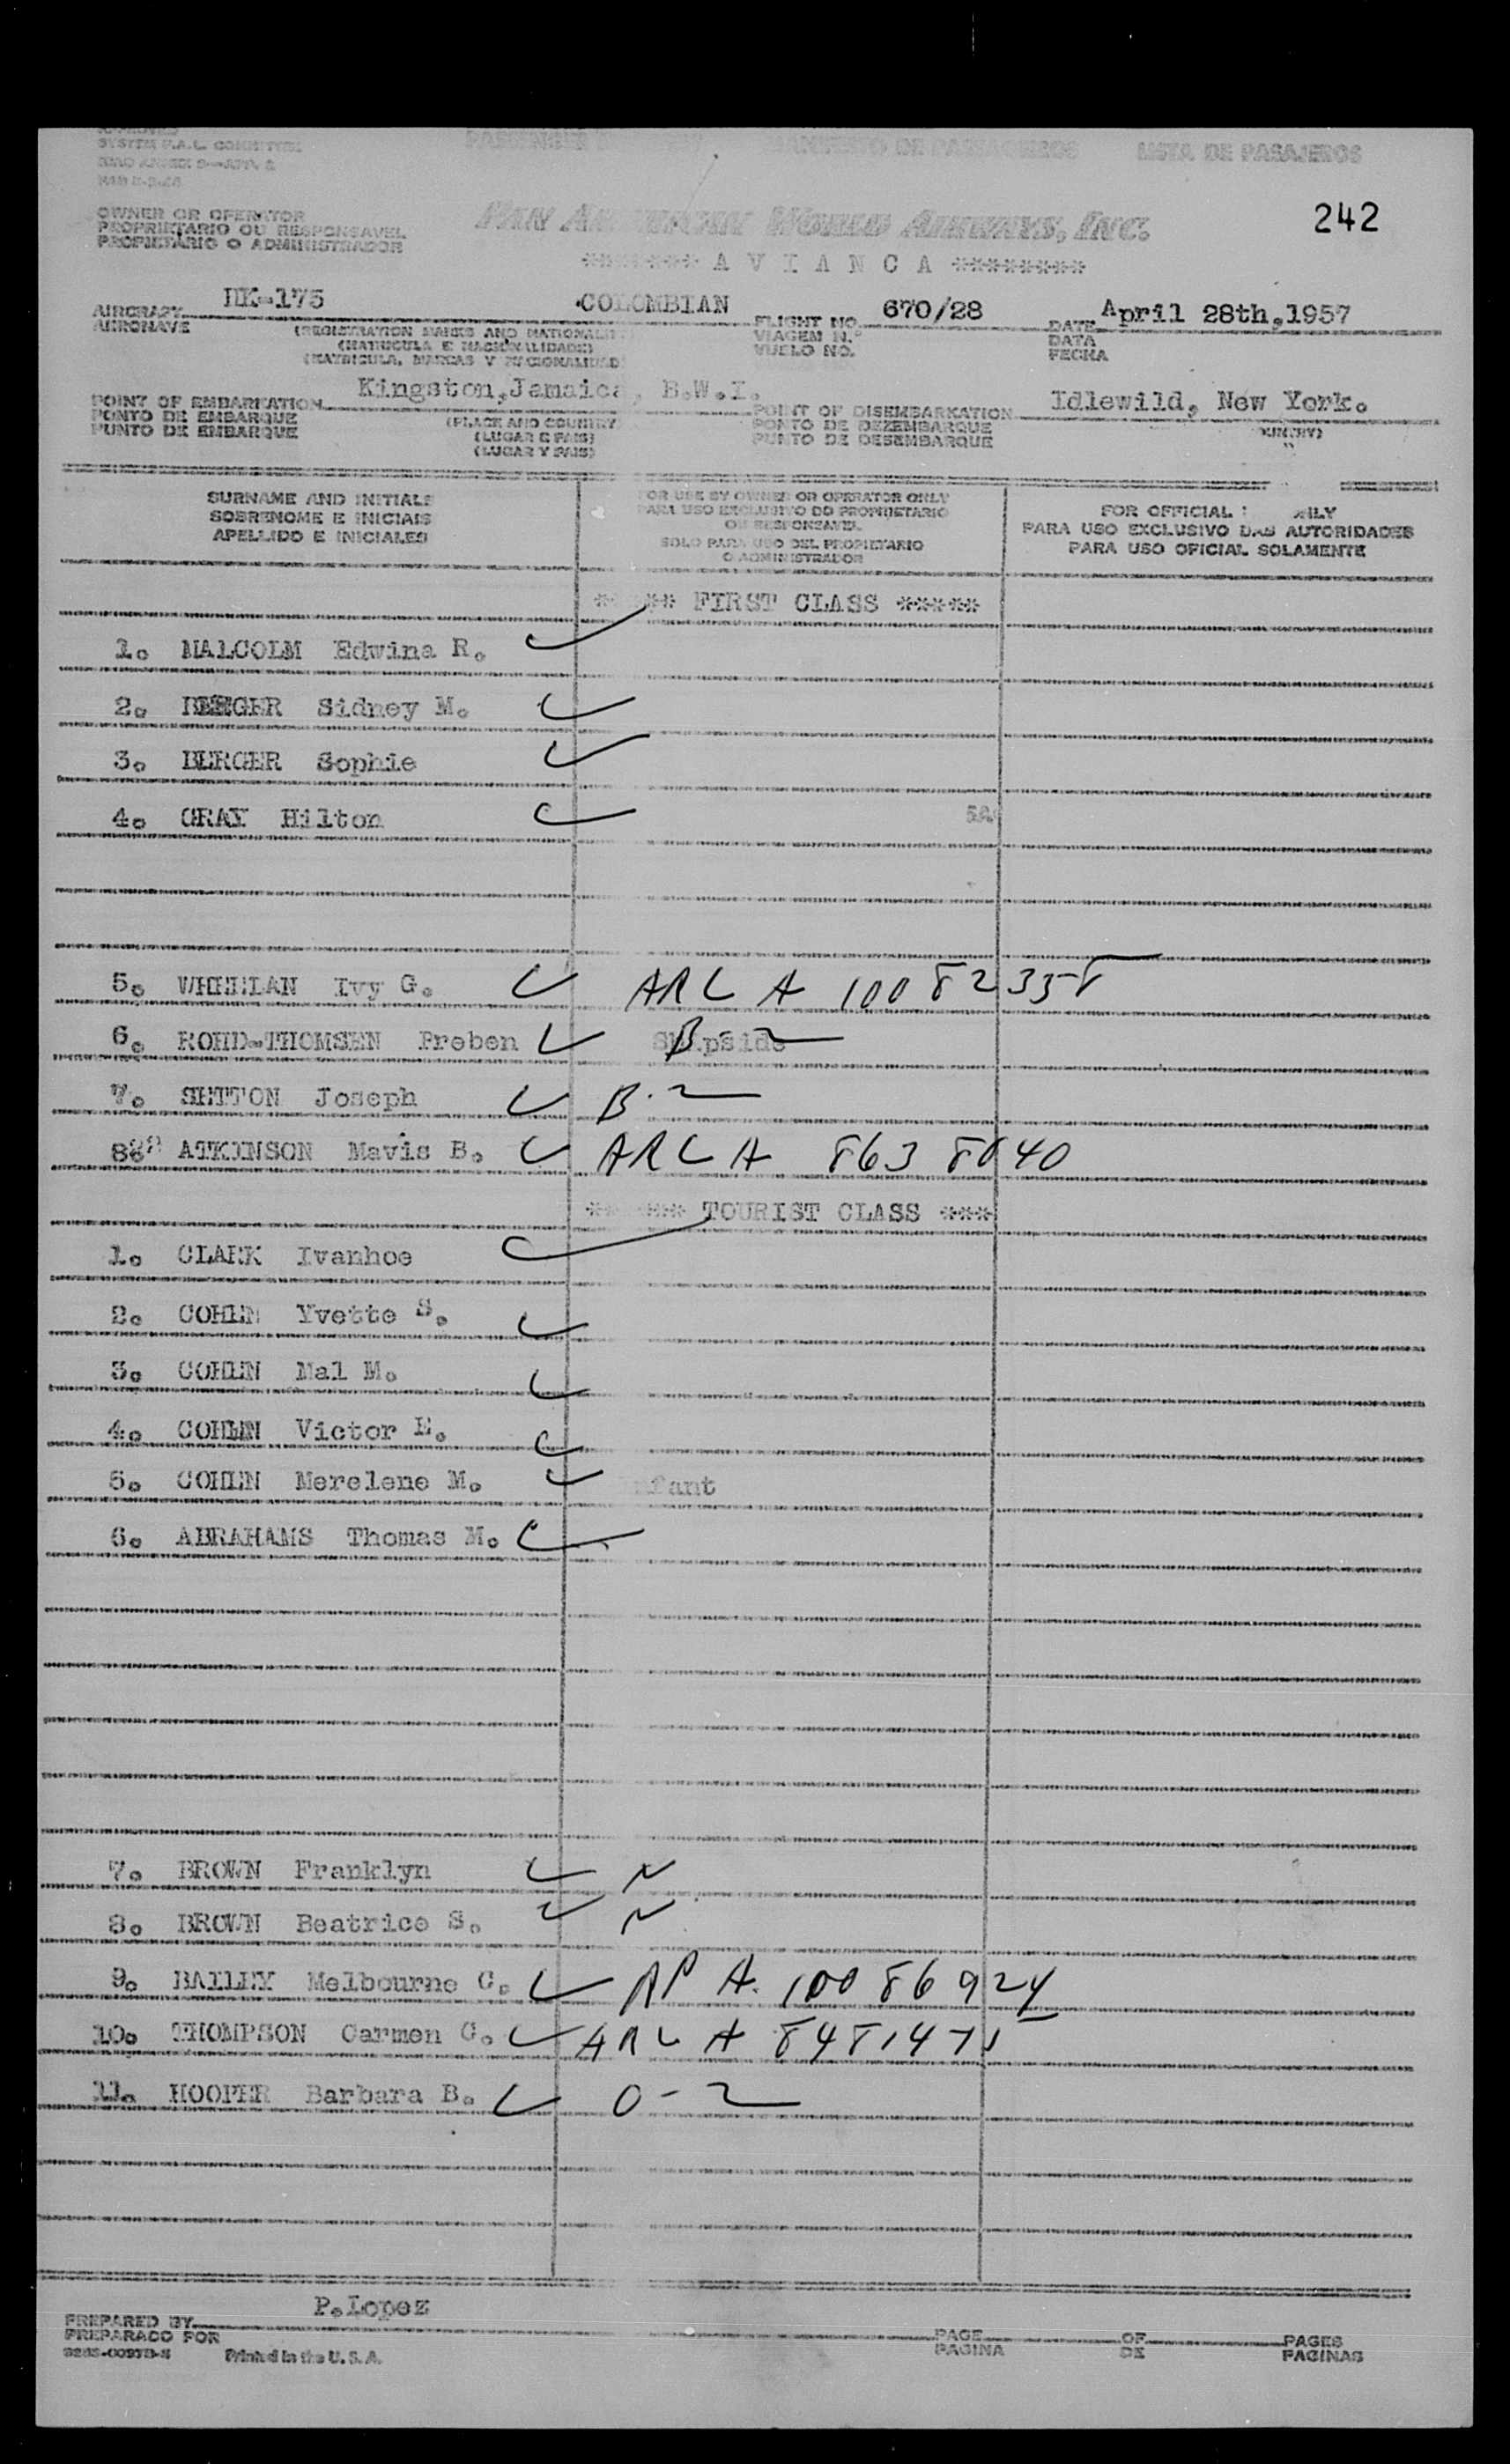 APPROVED
SYSTEM F.A.L. COMMITTEE
PASSENGER MANIFESTO DE PASSAGEIROS LISTA DE PASAJEROS
OWNER OR OPERATOR
PROPRIETARIO OU RESPONSAVEL
PROPIETARIO O ADMINISTRADOR
PAN AMERICAN WORLD AIRWAYS, INC.
242
******* A V I A N C A ********
AIRCRAFT HK-175 COLOMBIAN FLIGHT NO. 670/28 DATE April 28th,1957
AERONAVE (REGISTRATION MARKS AND NATIONALITY VIAGEM N.º DATA
(MATRICULA E NACIONALIDADE) VUELO NO. FECHA
(MATRICULA, MARCAS Y NACIONALIDAD)
POINT OF EMBARKATION Kingston,Jamaica, B.W.I. POINT OF DISEMBARKATION Idlewild, New York.
PONTO DE EMBARQUE (PLACE AND COUNTRY) PONTO DE DEZEMBARQUE
PUNTO DE EMBARQUE (LUGAR E PAIS) PUNTO DE DESEMBARQUE
(LUGAR Y PAIS)
SURNAME AND INITIALS
SOBRENOME E INICIAIS
APELLIDO E INICIALES
FOR USE BY OWNER OR OPERATOR ONLY
PARA USO EXCLUSIVO DO PROPRIETARIO
OU RESPONSAVEL
SOLO PARA USO DEL PROPIETARIO
O ADMINISTRADOR
FOR OFFICIAL
PARA USO EXCLUSIVO DAS AUTORIDADES
PARA USO OFICIAL SOLAMENTE
***** FIRST CLASS *****
1. MALCOLM Edwina R.
2. BERGER Sidney M.
3. BERGER Sophie
4. GRAY Hilton
5. WHEELAN Ivy G. ARC A 10082358
6. ROHD-THOMSEN Preben Shipside B-2
7. SETTON Joseph B-2
8. ATKINSON Mavis B. ARC A 8638040
***** TOURIST CLASS ***
1. CLARK Ivanhoe
2. COHEN Yvette S.
3. COHEN Mal M.
4. COHEN Victor E.
5. COHEN Merelene M. nfant
6. ABRAHAMS Thomas M.
7. BROWN Franklyn N
8. BROWN Beatrice S. N
9. BAILEY Melbourne C. AP A. 10086924
10. THOMPSON Carmen C. ARC A 8481471
11. HOOPER Barbara B. O-2
PREPARED BY P.Lopez
PREPARADO POR
Printed in the U. S. A.
PAGE OF PAGES
PAGINA DE PAGINAS